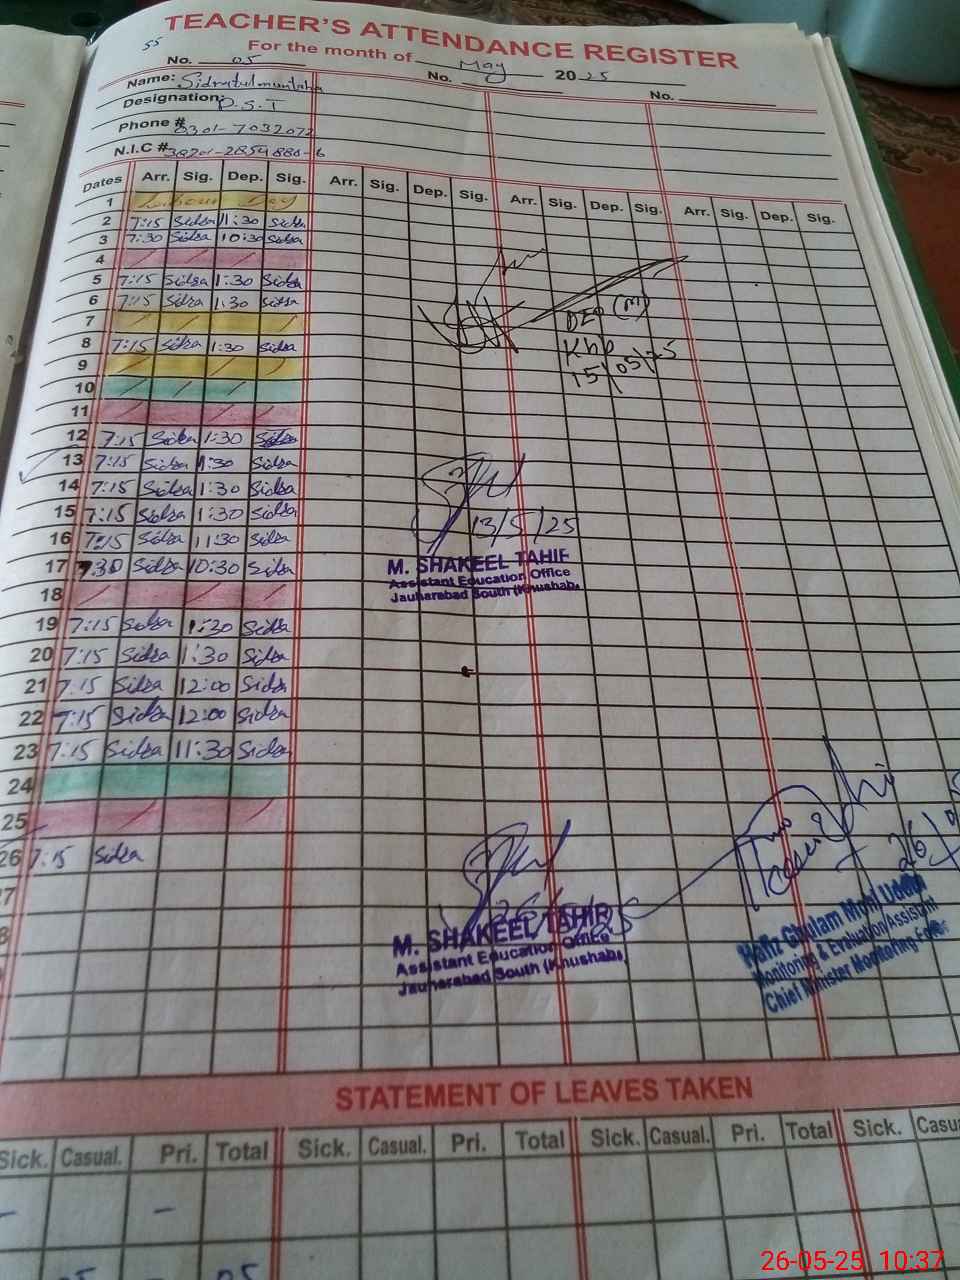 TEACHER'S ATTENDANCE REGISTER
55
For the month of May 2025
No. 05 No. No.
Name: Sidratulmuntaha
Designation: P.S.T
Phone # 0301-7032072
N.I.C # 38201-2854880-6
Dates Arr. Sig. Dep. Sig. Arr. Sig. Dep. Sig. Arr. Sig. Dep. Sig. Arr. Sig. Dep. Sig.
1 Labour Day
2 7:15 Sidra 11:30 Sidra
3 7:30 Sidra 10:30 Sidra
4
5 7:15 Sidra 1:30 Sidra
6 7:15 Sidra 1:30 Sidra
7
DEO (M)
8 7:15 Sidra 1:30 Sidra
Khb
9
15/05/25
10
11
12 7:15 Sidra 1:30 Sidra
13 7:15 Sidra 1:30 Sidra
14 7:15 Sidra 1:30 Sidra
15 7:15 Sidra 1:30 Sidra
13/5/25
16 7:15 Sidra 11:30 Sidra
17 7:30 Sidra 10:30 Sidra
M. SHAKEEL TAHIR
Assistant Education Office
Jauharabad South (Khushab)
18
19 7:15 Sidra 1:30 Sidra
20 7:15 Sidra 1:30 Sidra
21 7:15 Sidra 12:00 Sidra
22 7:15 Sidra 12:00 Sidra
23 7:15 Sidra 11:30 Sidra
24
25
26 7:15 Sidra
M. SHAKEEL TAHIR
Assistant Education Office
Jauharabad South (Khushab)
Hafiz Ghulam Mohi Uddin
Monitoring & Evaluation Assistant
Chief Minister Monitoring Force
STATEMENT OF LEAVES TAKEN
Sick. Casual. Pri. Total Sick. Casual. Pri. Total Sick. Casual. Pri. Total Sick. Casu
- -
05 05
26-05-25 10:37